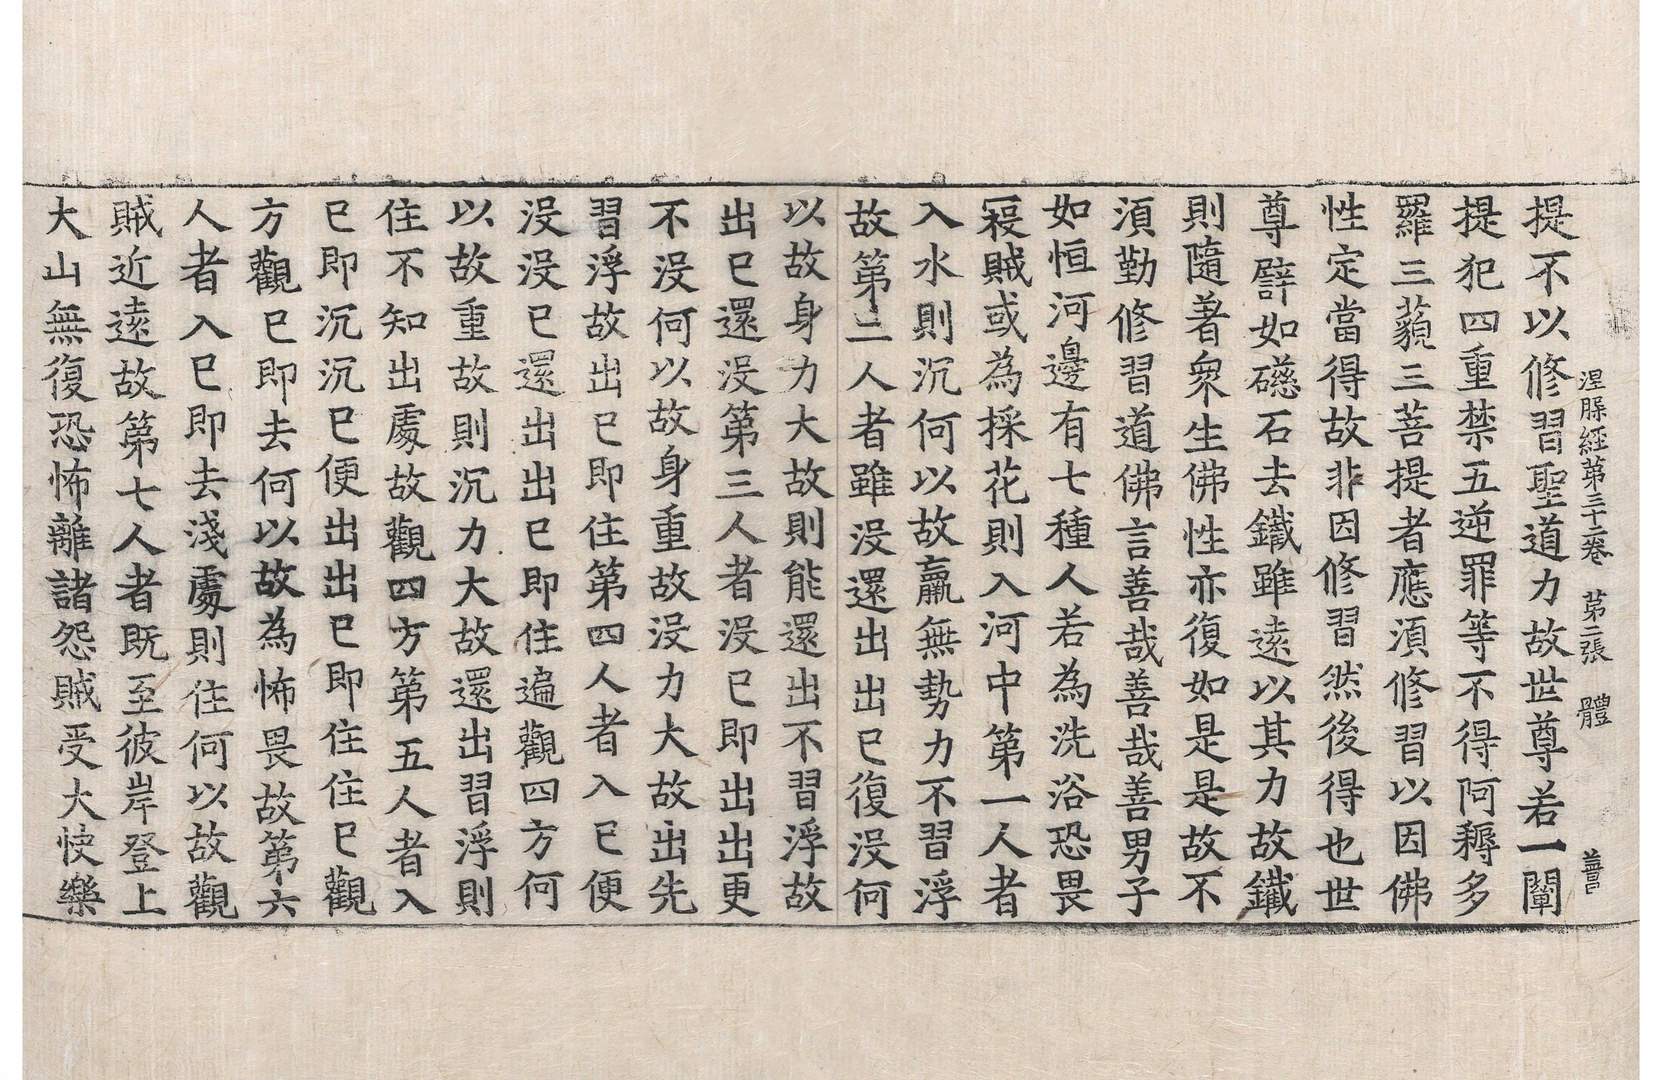 涅槃經第三十二卷　第二張　體
提不以修習聖道力故世尊若一闡
提犯四重禁五逆罪等不得阿耨多
羅三藐三菩提者應湏修習以因佛
性定當得故非因修習然後得也世
尊譬如磁石去鐵雖遠以其力故鐵
則隨著衆生佛性亦復如是是故不
湏勤修習道佛言善哉善哉善男子
如恒河邊有七種人若為洗浴恐畏
寇賊或為採花則入河中第一人者
入水則沉何以故羸無勢力不習浮
故第二人者雖没還出出已復没何
以故身力大故則能還出不習浮故
出已還没第三人者没已即出出更
不没何以故身重故没力大故出先
習浮故出已即住第四人者入已便
没没已還出出已即住遍觀四方何
以故重故則沉力大故還出習浮則
住不知出處故觀四方第五人者入
已即沉沉已便出出已即住住已觀
方觀已即去何以故為怖畏故第六
人者入已即去淺處則住何以故觀
賊近遠故第七人者既至彼岸登上
大山無復恐怖離諸怨賊受大快樂